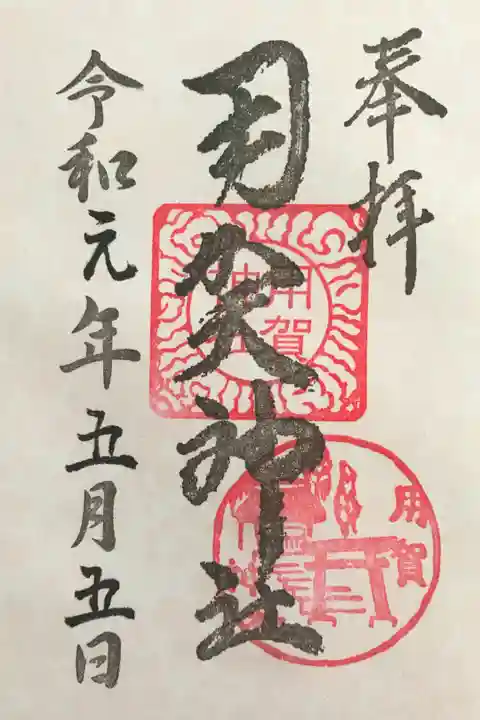 奉拝
用賀神社
用賀神社
用賀
令和元年五月五日